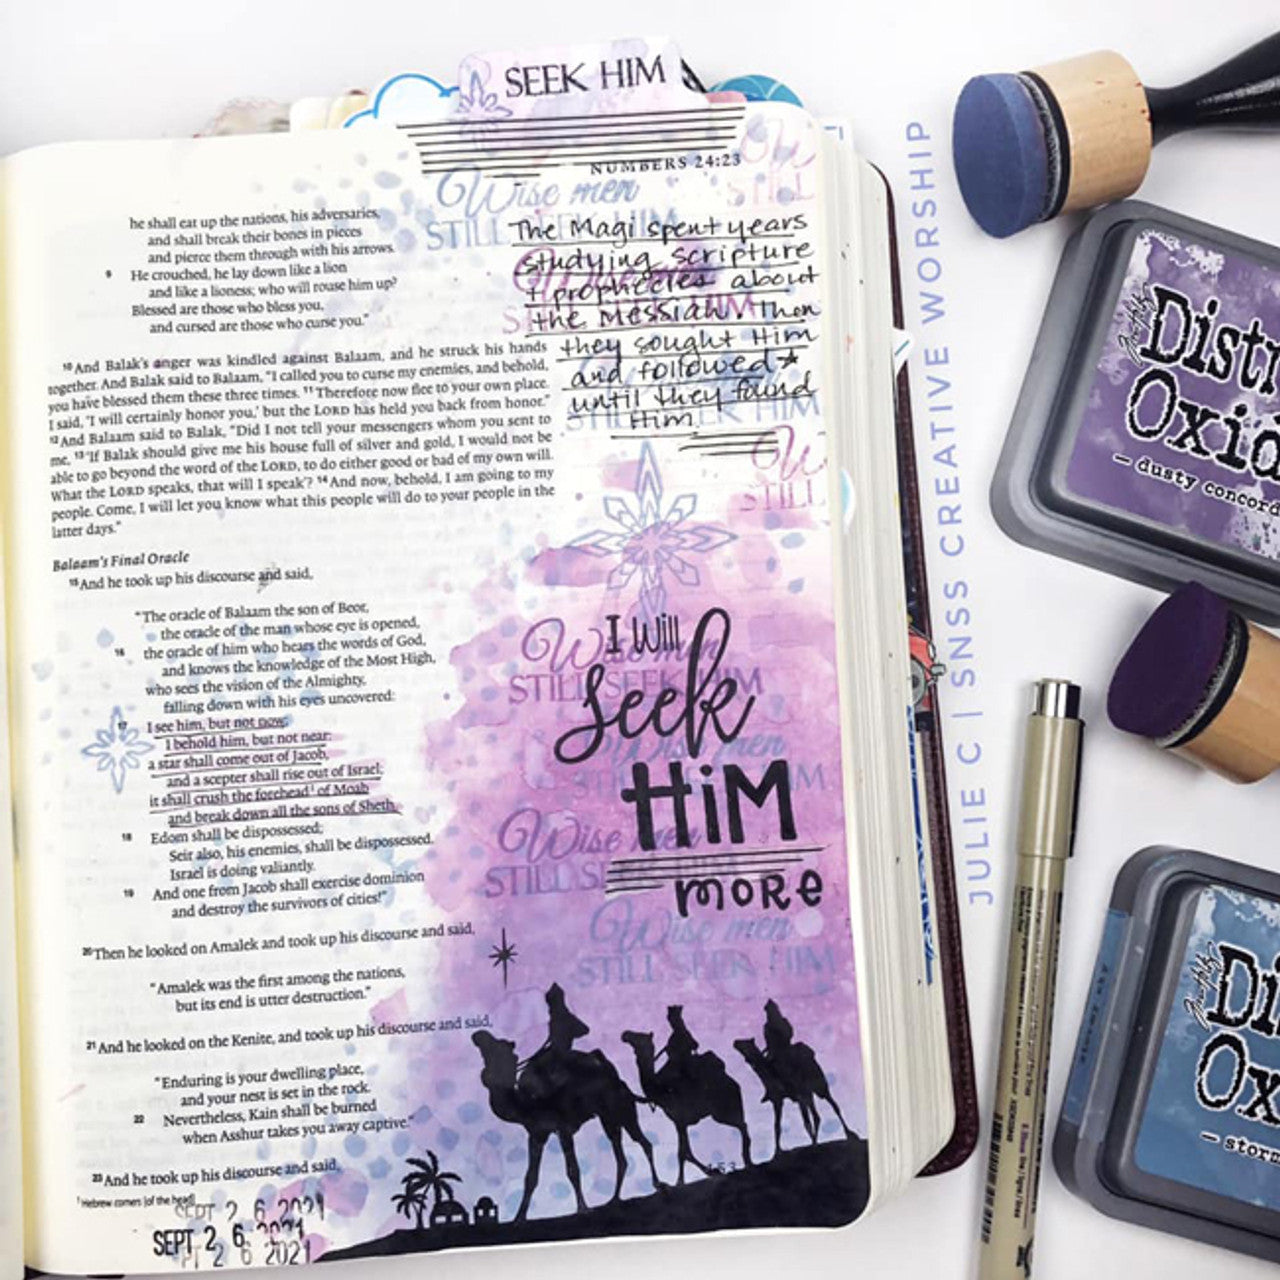 SEEK HIM
NUMBERS 24:23
Wise men
STILL SEEK HIM
The Magi spent years
studying scripture
+ prophecies about
the Messiah. Then
they sought Him
and followed
until they found
Him.
he shall eat up the nations, his adversaries,
and shall break their bones in pieces
and pierce them through with his arrows.
9 He crouched, he lay down like a lion
and like a lioness; who will rouse him up?
Blessed are those who bless you,
and cursed are those who curse you.”
10 And Balak’s anger was kindled against Balaam, and he struck his hands
together. And Balak said to Balaam, “I called you to curse my enemies, and behold,
you have blessed them these three times. 11 Therefore now flee to your own place.
I said, ‘I will certainly honor you,’ but the LORD has held you back from honor.”
12 And Balaam said to Balak, “Did I not tell your messengers whom you sent to
me, 13 ‘If Balak should give me his house full of silver and gold, I would not be
able to go beyond the word of the LORD, to do either good or bad of my own will.
What the LORD speaks, that will I speak’? 14 And now, behold, I am going to my
people. Come, I will let you know what this people will do to your people in the
latter days.”
Balaam’s Final Oracle
15 And he took up his discourse and said,
“The oracle of Balaam the son of Beor,
the oracle of the man whose eye is opened,
16 the oracle of him who hears the words of God,
and knows the knowledge of the Most High,
who sees the vision of the Almighty,
falling down with his eyes uncovered:
17 I see him, but not now;
I behold him, but not near:
a star shall come out of Jacob,
and a scepter shall rise out of Israel;
it shall crush the forehead1 of Moab
and break down all the sons of Sheth.
18 Edom shall be dispossessed;
Seir also, his enemies, shall be dispossessed.
Israel is doing valiantly.
19 And one from Jacob shall exercise dominion
and destroy the survivors of cities!”
20 Then he looked on Amalek and took up his discourse and said,
“Amalek was the first among the nations,
but its end is utter destruction.”
21 And he looked on the Kenite, and took up his discourse and said,
“Enduring is your dwelling place,
and your nest is set in the rock.
22 Nevertheless, Kain shall be burned
when Asshur takes you away captive.”
23 And he took up his discourse and said,
1 Hebrew corners [of the head]
SEPT 2 6 2021
SEPT 2 6 2021
PT 2 6 2021
I Will
seek
HiM
more
Wise men
STILL SEEK HIM
Wise men
STILL SEEK HIM
Wise men
STILL SEEK HIM
Wise men
STILL SEEK HIM
JULIE C | SNSS CREATIVE WORSHIP
Distr
Oxid
dusty concord
Di
Ox
storm